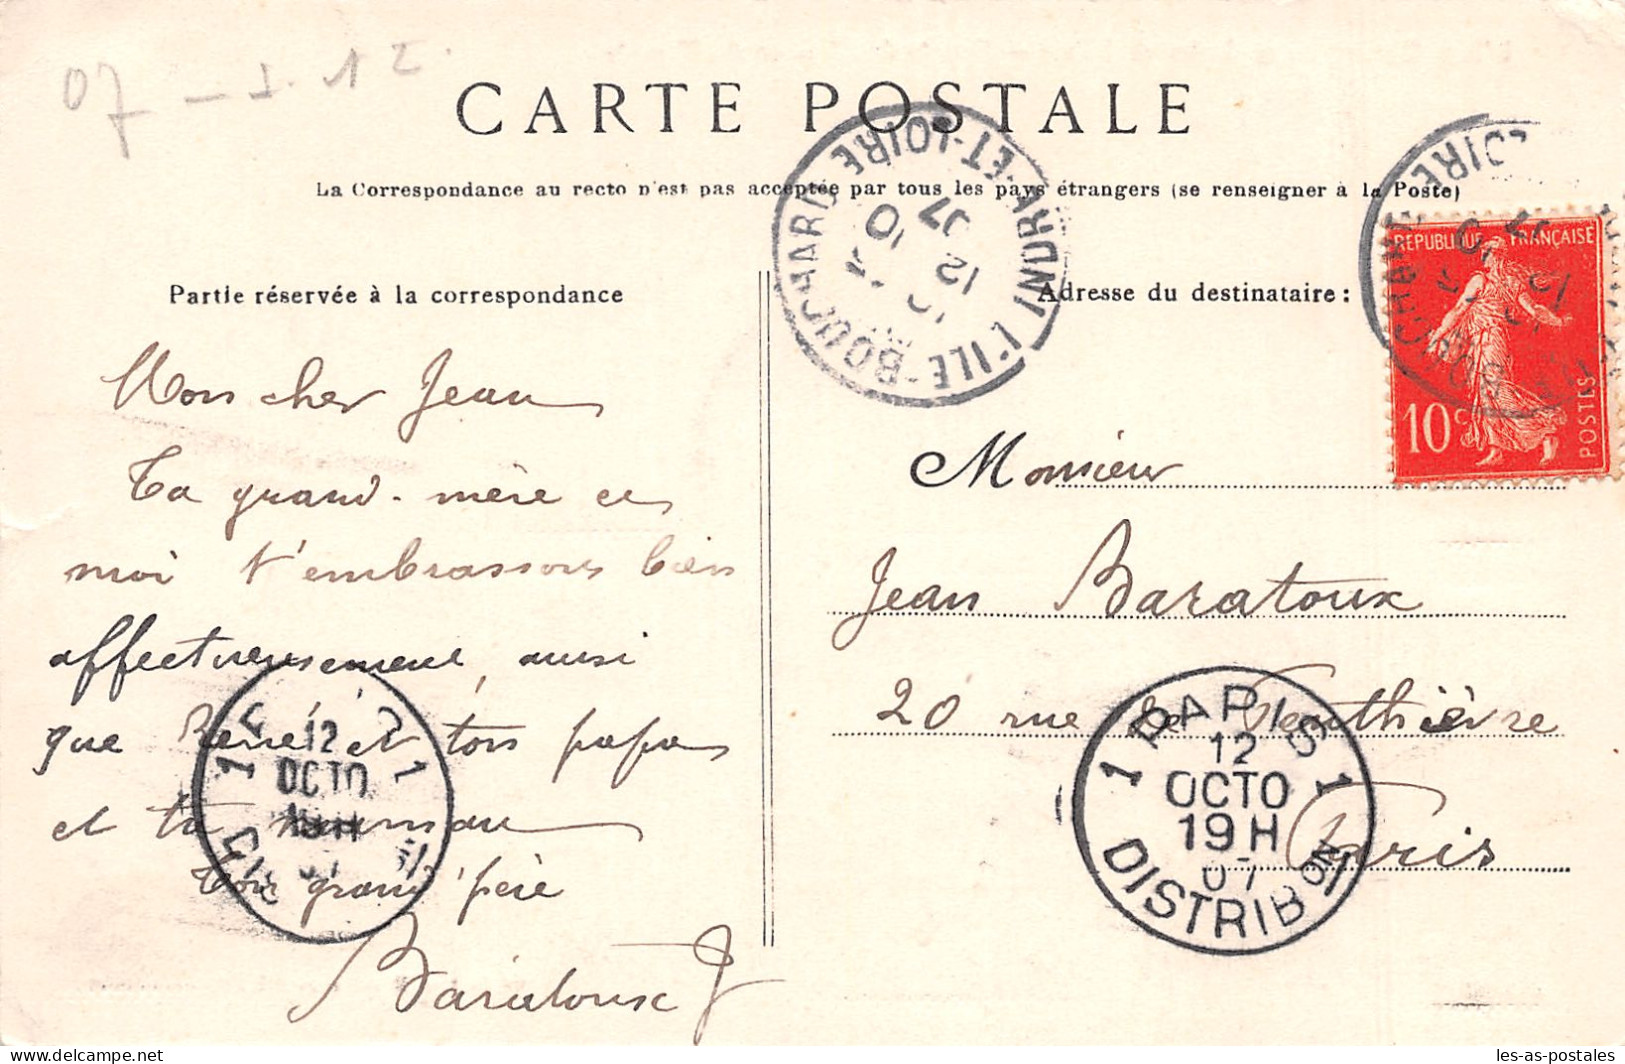 07 - 1. 12.
CARTE POSTALE
La Correspondance au recto n'est pas acceptée par tous les pays étrangers (se renseigner à la Poste)
Partie réservée à la correspondance
Mon cher Jean
Ta grand-mère et
moi t'embrassons bien
affectueusement, ainsi
que René et ton papa
et ta maman
Ton grand'père
Baratoux J
L'ILE-BOUCHARD INDRE-ET-LOIRE
12 10 07
Adresse du destinataire :
REPUBLIQUE FRANÇAISE
10c POSTES
Monsieur
Jean Baratoux
20 rue de Penthièvre
Paris
1 PARIS 1
12
OCTO
19 H
07
DISTRIBON
12
OCTO
19 H
delcampe.net
les-as-postales